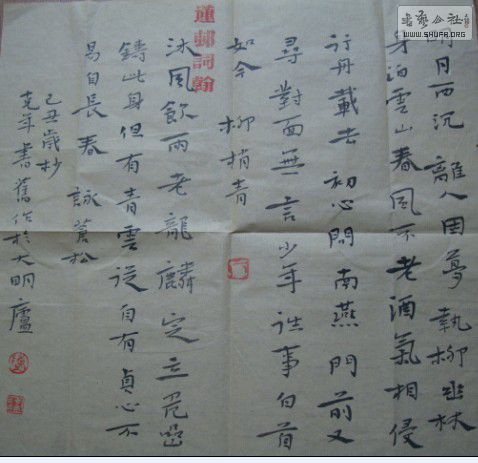 书艺公社
WWW.SHUFA.ORG
蓮邨詞翰
明月西沉 離人困夢 執柳幽林
身泊雲山春風不老酒氣相侵
行舟載去初心問南燕門前又
尋對面無言少年往事白首
如今 柳梢青
沐風飲雨老龍麟定立危
鑄此身但有青雲從自有貞心不
易自長春 詠蒼松
己丑歲抄
克年書舊作於大明廬